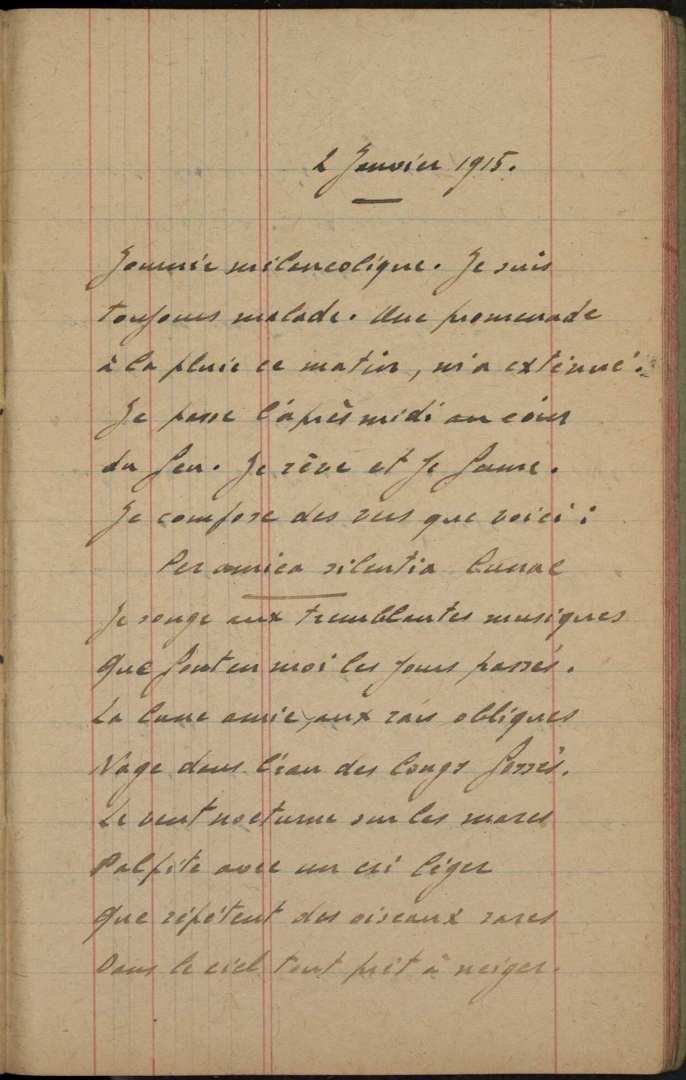 2 Janvier 1915.
Journée mélancolique. Je suis
toujours malade. Une promenade
à la pluie ce matin, m'a exténué.
Je passe l'après midi au coin
du feu. Je rêve et je fume.
Je compose des vers que voici :
Per amica silentia lunae
Je songe aux tremblantes musiques
Que font en moi les jours passés.
La lune amie, aux rais obliques
Nage dans l'eau des longs fossés.
Le vent nocturne sur les mares
Palpite avec un cri léger
Que répètent des oiseaux rares
Dans le ciel tout prêt à neiger.